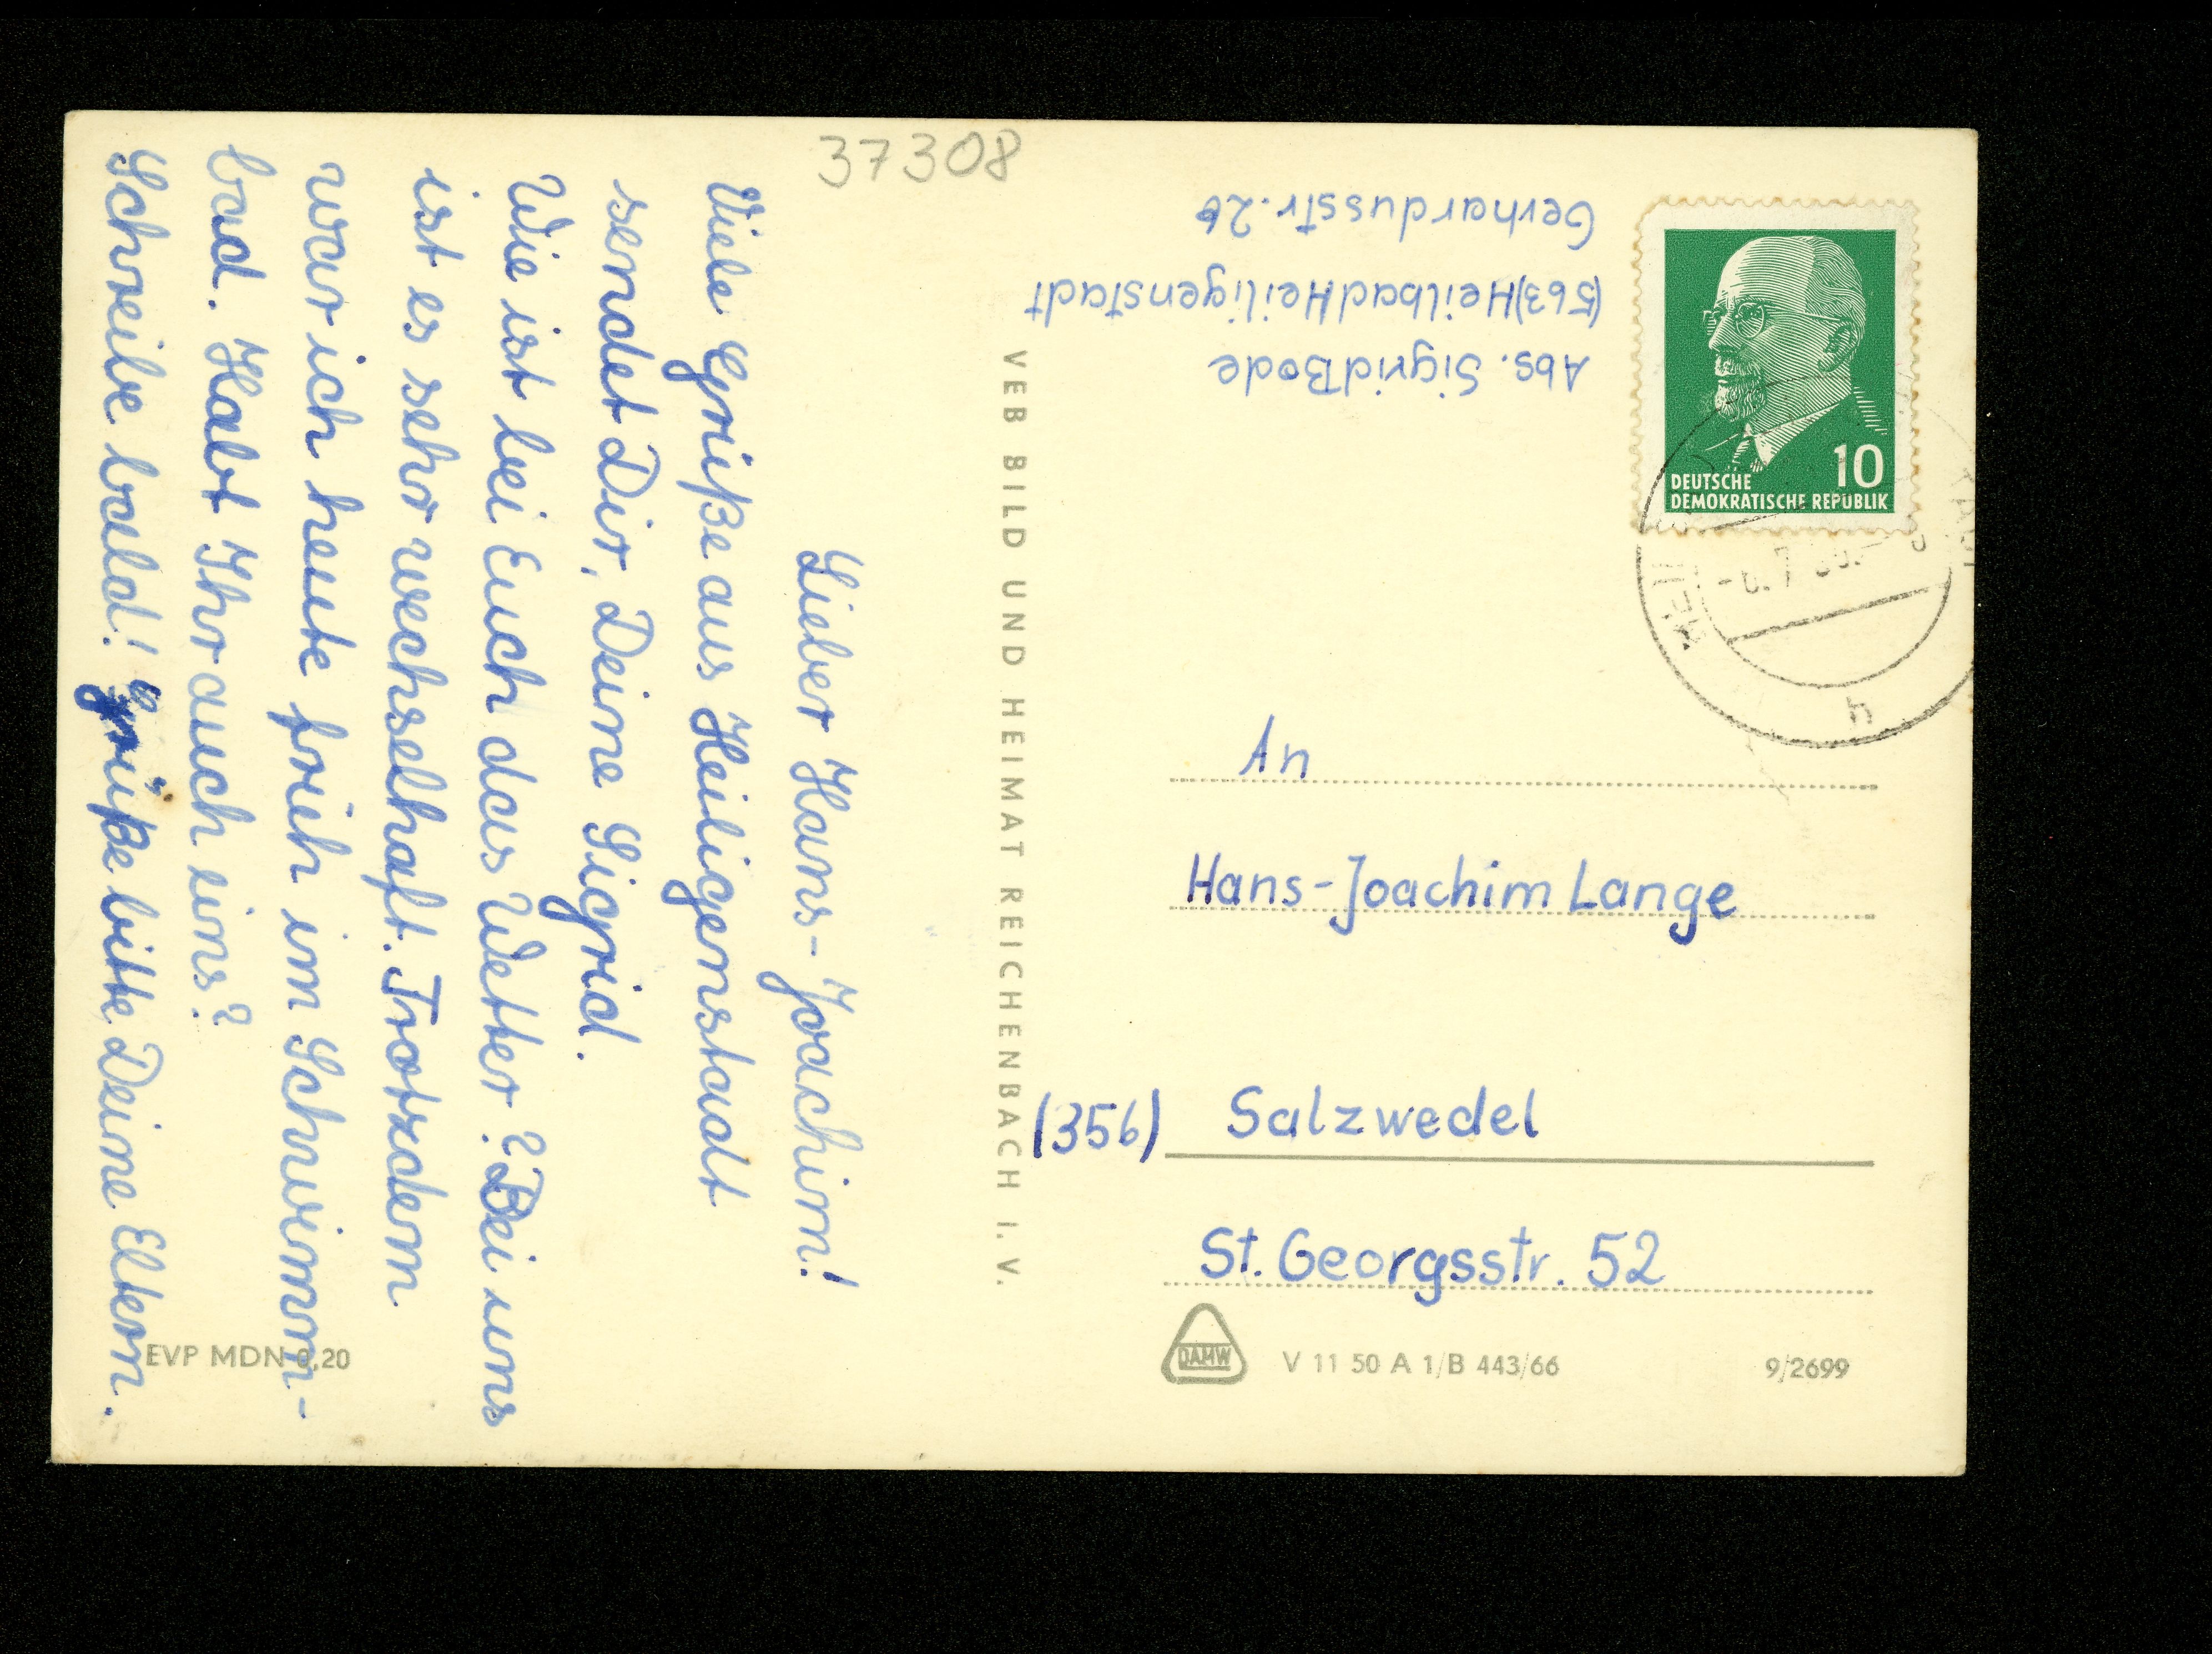 37308
Lieber Hans-Joachim!
Viele Grüße aus Heiligenstadt
sendet Dir, Deine Sigrid.
Wie ist bei Euch das Wetter? Bei uns
ist es sehr wechselhaft. Trotzdem
war ich heute früh im Schwimm-
bad. Habt Ihr auch eins?
Schreibe bald! Grüße bitte Deine Eltern.
EVP MDN 0,20
VEB BILD UND HEIMAT REICHENBACH I. V.
Abs. Sigrid Bode
(563) Heilbad Heiligenstadt
Gerhardusstr. 26
10
DEUTSCHE
DEMOKRATISCHE REPUBLIK
h
An
Hans-Joachim Lange
(356) Salzwedel
St. Georgsstr. 52
DAMW
V 11 50 A 1/B 443/66
9/2699